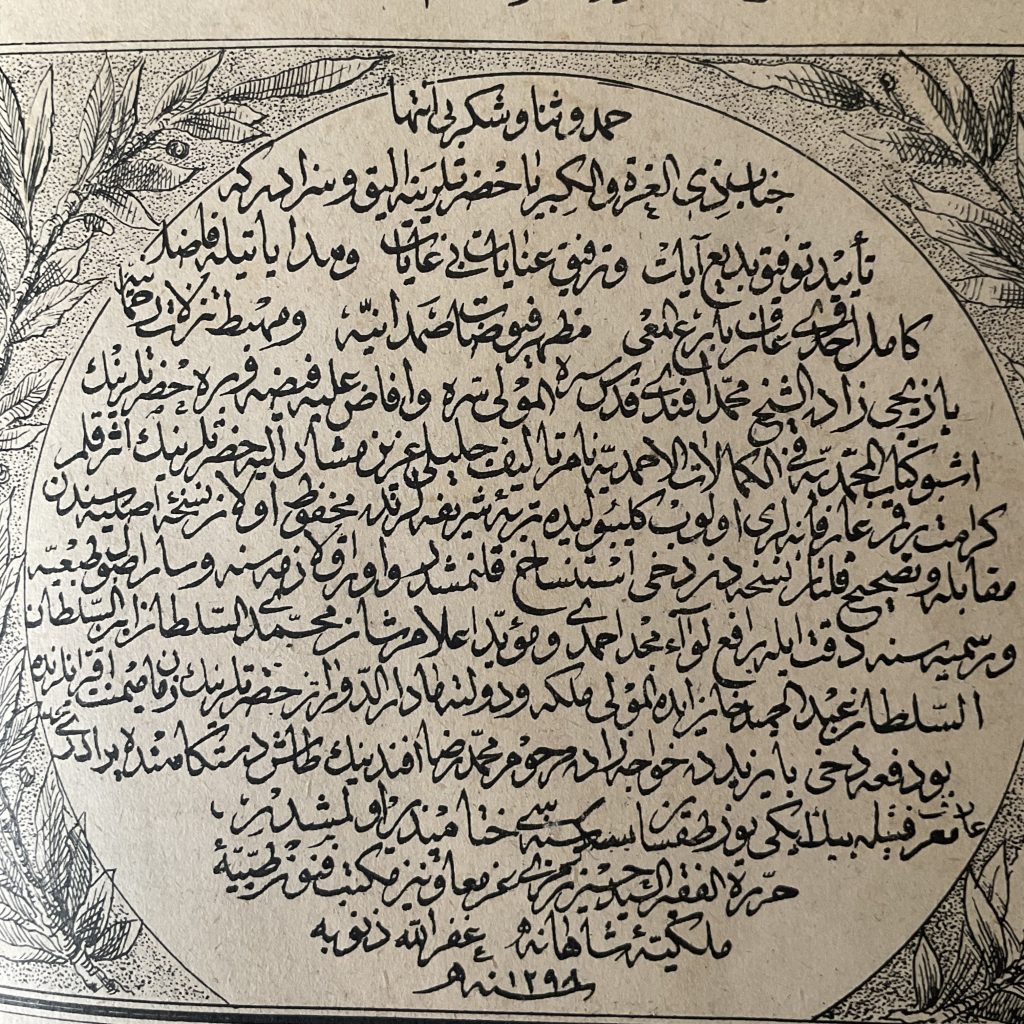 حمد و ثنا و شکر بی انتها
جناب ذی العزة والکبریا حضرتلرینه الیق و سزادر که
تأییدتوفیق بدیع آیات و ترفیق عنایات بی غایات و هدایاتیله فاضل
کامل احمدی عارف بارع المعی مظهر فیوضات صمدانیه و مهبط تنزلات رحمانیه
یازیجی زاده الشیخ محمد افندی قدس سره المولی سره وافاض علیه فیضه وبره حضرتلرینك
اشبو کتاب المحمدیه فی الکمالات الاحمدیه نام تألیف جلیلی عزیز مشار الیه حضرتلرینك اثر قلم
کرامت رقم عارفانه لری اولوب کلیبولیده تربۀ شریفه لرنده محفوظ اولان نسخۀ اصلیه سندن
مقابله و تصحیح قلنان نسخه دن دخی استنساخ قلنمشدر واوراق لازمه سنه و سائر اصول طبعیه
و رسمیه سنه دقت ایله رافع لوآء مجد احمدی و مؤید اعلام شان محمدی السلطان ابن السلطان
السلطان عبد الحمید خان ایده المولی ملکه و دولته مادار الدوران حضرتلرینك زمان میمنت اقترانلرنده
بو دفعه دخی بایزیدده خواجه زاده مرحوم محمد رضا افندینك طاش دستکاهنده برادری
معرفتیله بیك ایکی یوز طقسان سکز سنه سی ختامپذیر اولمشدر
حرره الفقیر السید حسین رمزی عن معاونین مکتب فنون طبیۀ
ملکیۀ شاهانه غفر الله ذنوبه
سنه ١٢٩٨